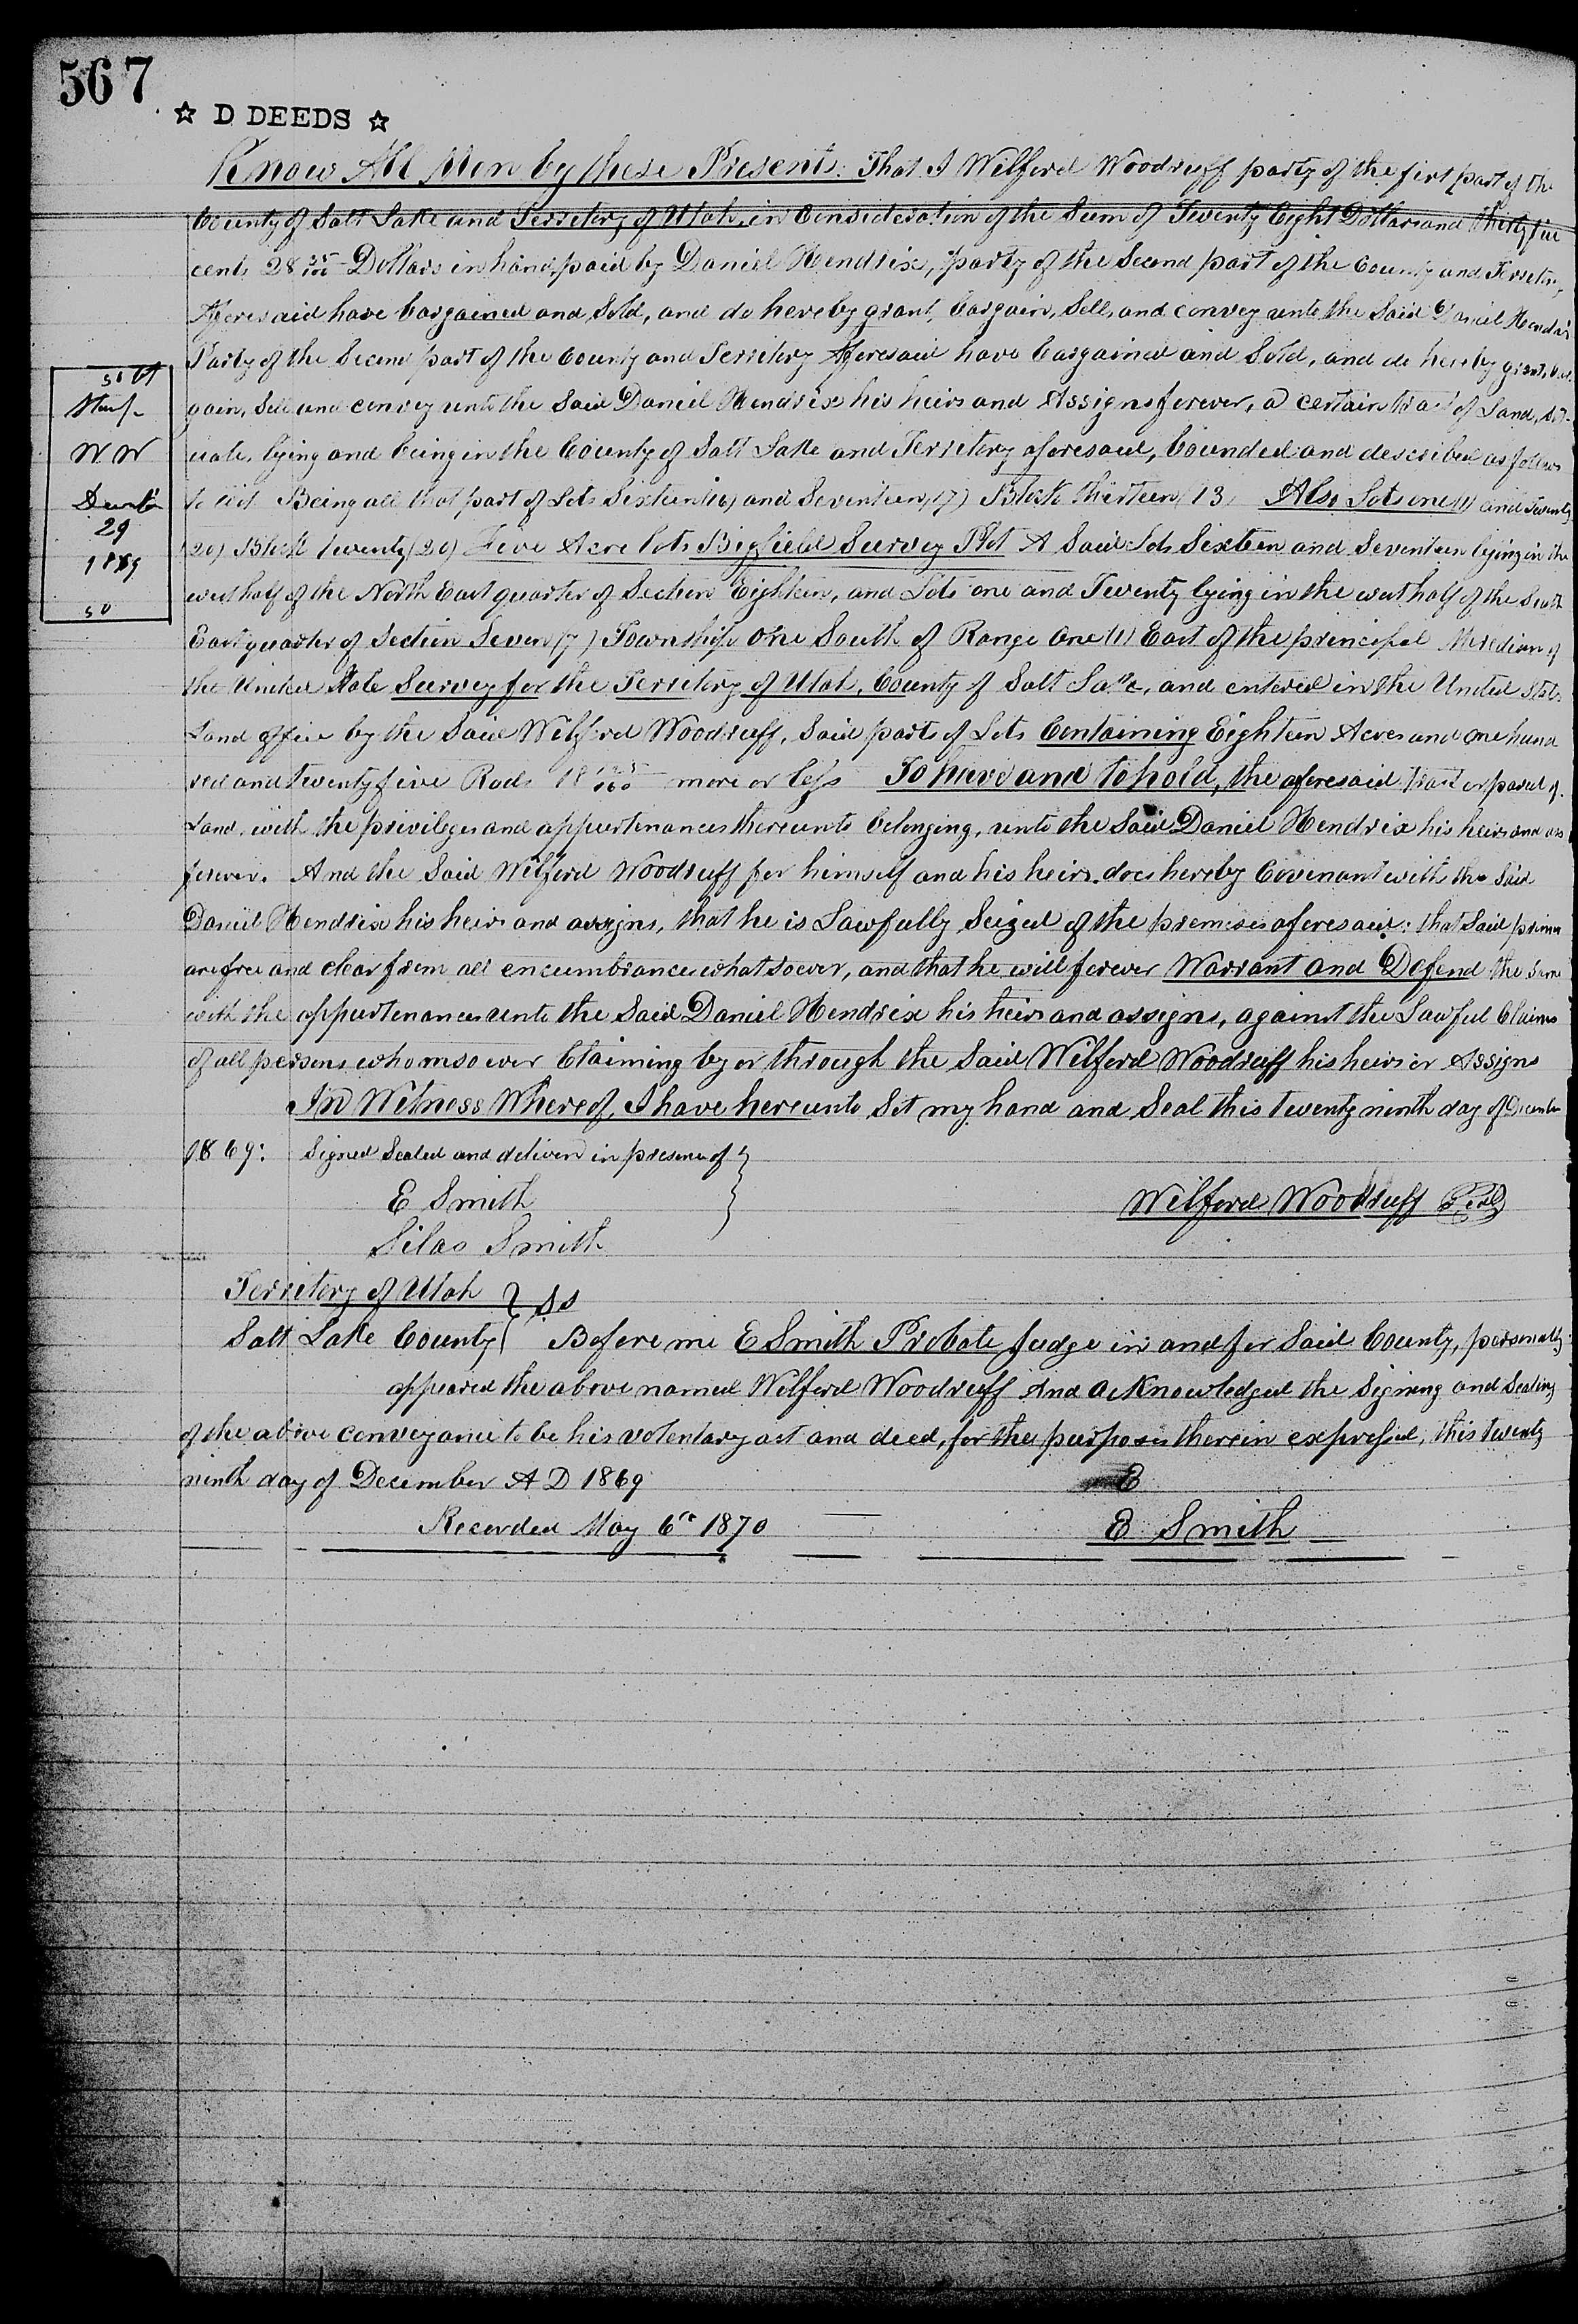 567
☆ D DEEDS ☆
Know All Men by these Presents. That I Wilford Woodruff party of the first part of the
County of Salt Lake and Territory of Utah, in Consideration of the Sum of Twenty Eight Dollars and thirty five
cents 28 35/100 Dollars in hand paid by Daniel Hendrix, party of the Second part of the County and Territory
Aforesaid have bargained and Sold, and do hereby grant, bargain, Sell, and convey unto the Said Daniel Hendrix
Party of the Second part of the County and Territory Aforesaid have bargained and Sold, and do hereby grant, bar-
gain, Sell and convey unto the Said Daniel Hendrix his heirs and Assigns forever, a certain tract of Land, sit-
uate, lying and being in the County of Salt Lake and Territory aforesaid, bounded and described as follows
to wit. Being all that part of Lots Sixteen (16) and Seventeen (17) Block thirteen (13) Also Lots one (1) and Twenty
(20) Block twenty (20) Five Acre lots Bigfield Survey Plot A Said Lots Sixteen and Seventeen lying in the
west half of the North East quarter of Section Eighteen, and Lots one and Twenty lying in the west half of the South
East quarter of Section Seven (7) Township one South of Range One (1) East of the principal Meredian of
the United State Survey for the Territory of Utah, County of Salt Lake, and entered in the United States
Land office by the Said Wilford Woodruff, Said parts of Lots Containing Eighteen Acres and one hund
red and twenty five Rods 18 125/160 more or less To have and to hold, the aforesaid tract or parcel of
Land, with the privileges and appurtenances thereunto belonging, unto the Said Daniel Hendrix his heirs and ass
forever. And the Said Wilford Woodruff for himself and his heirs does hereby Covenant with the Said
Daniel Hendrix his heirs and assigns, that he is Lawfully Seized of the premises aforesaid: that Said premises
are free and clear from all encumbrances whatsoever, and that he will forever Warrant and Defend the same
with the appurtenances unto the Said Daniel Hendrix his heirs and assigns, against the Lawful Claims
of all persons whomsoever Claiming by or through the Said Wilford Woodruff his heirs or Assigns
In Witness Whereof, I have hereunto Set my hand and Seal this twenty ninth day of December
1869: Signed Sealed and deliverd in presence of
E Smith
Wilford Woodruff Seal
Silas Smith
50 ct
Stamp
W W
Decmbr
29
1869
50
Territory of Utah } SS
Salt Lake County } Before me E Smith Probate Judge in and for Said County, personally
appeared the above named Wilford Woodruff And acknowledged the Signing and Sealing
of the above conveyance to be his volentary act and deed, for the purposes therein expressed, this twenty
ninth day of December A D 1869
E
Recorded May 6th 1870
E Smith